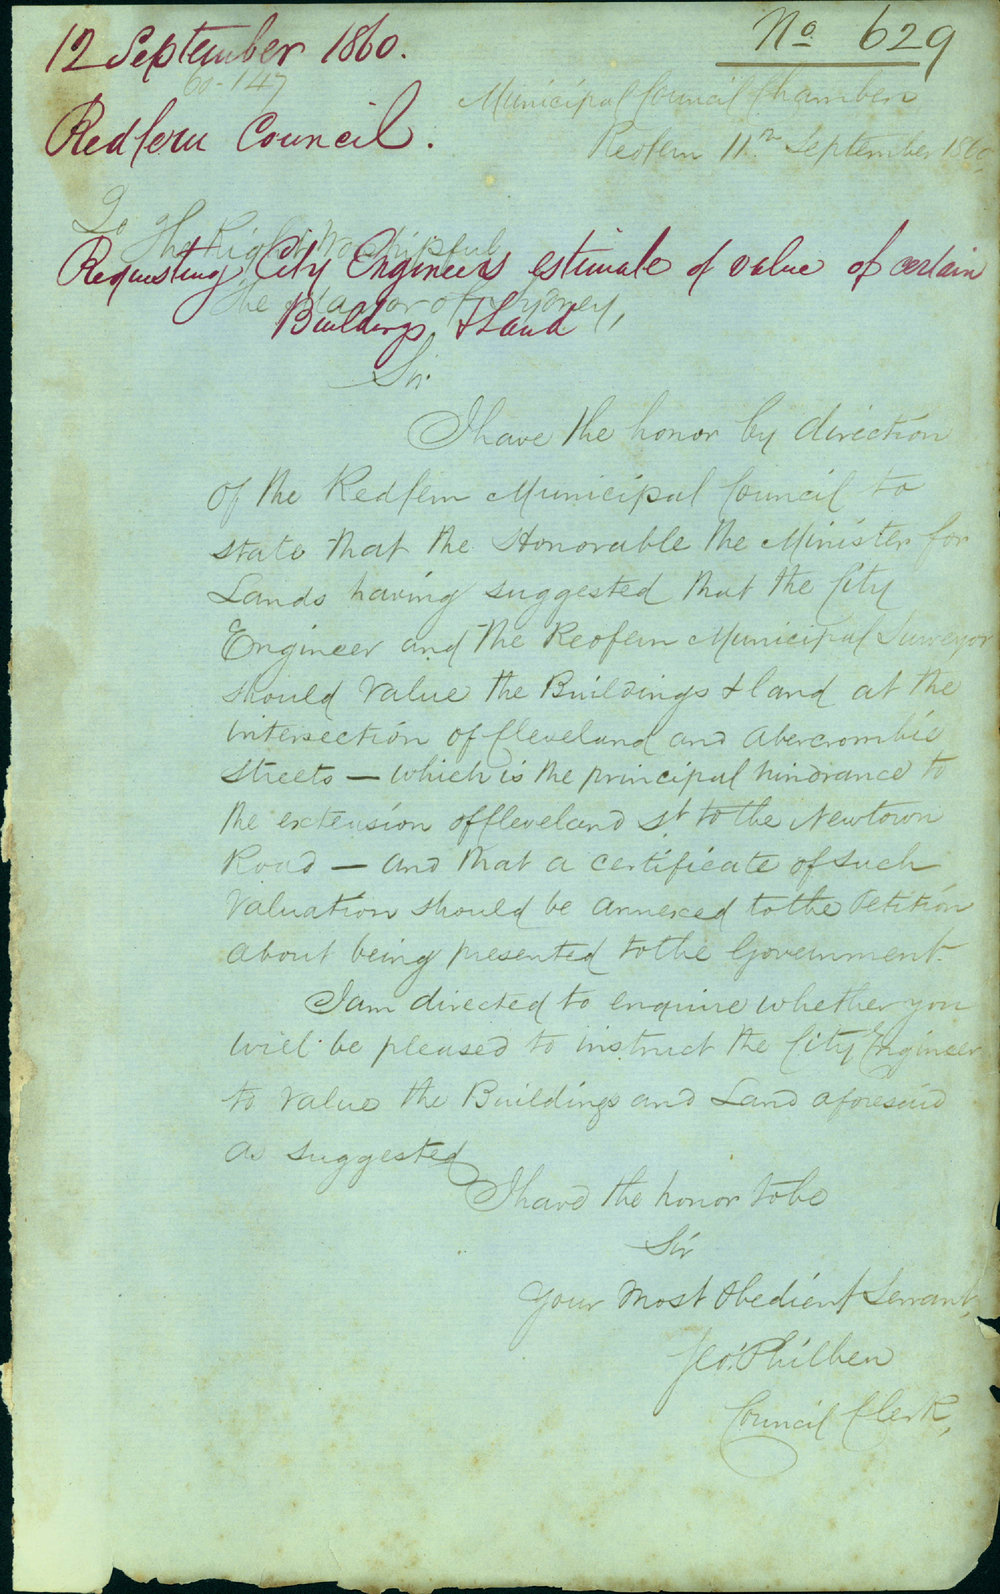 12 September 1860.
No 629
60-147
Municipal Council Chambers
Redfern Council.
Redfern 11th September 1860.
To
The Right Worshipful
Requesting City Engineers estimate of value of certain
The Mayor of Sydney,
Buildings & Land
Sir.
I have the honor by direction
of the Redfern Municipal Council to
state that the Honorable the Minister for
Lands having suggested that the City
Engineer and the Redfern Municipal Surveyor
should value the Buildings & land at the
intersection of Cleveland and Abercrombie
Streets — which is the principal hindrance to
the extension of Cleveland St to the Newtown
Road — and that a certificate of such
Valuation should be annexed to the Petition
about being presented to the Government.
I am directed to enquire whether you
will be pleased to instruct the City Engineer
to value the Buildings and Land aforesaid
as suggested
I have the honor to be
Sir
Your most Obedient Servant,
Geo. Philben
Council Clerk,